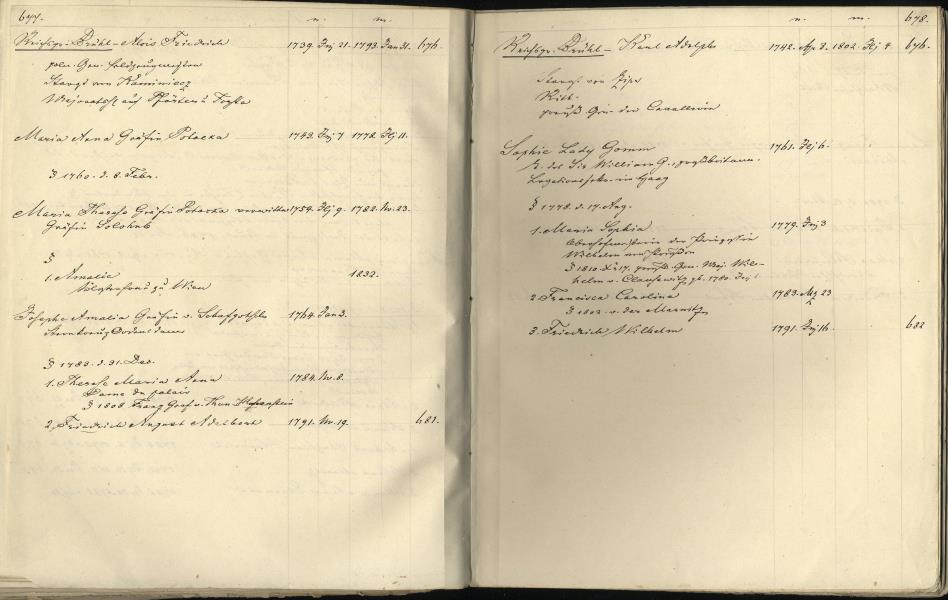 677. n. m.
Reichsgr. Brühl - Alois Friedrich 1739. Jul 21. 1793. Jan 31. 676.
poln. Gen. Feldzeugmeister
Starost von Kaminiecz
Majoratsh. auf Pförten u
Maria Anna Gräfin Potocka 1743. 7 1778. 11.
§ 1760. d. 8. Febr.
Maria Therese Gräfin Potocka verwittw 1754. 9. 1782. Nv. 23.
Gräfin
§
1. Amalie 1832.
zu Wien
Josephe Amalia Gräfin v. Schafgotsche 1764. Jan 3.
Sternkreuz Ordens dame
§ 1783. d. 31. Dec.
1. Therese Maria Anna 1784. Nv. 8.
Dame du palais
§ 1808 Franz Graf v. Thun Hohenstein
2. Friedrich August Adelbert 1791. Nv. 19. 681.
n. m. 678.
Reichsgr. Brühl - Karl Adolph 1742. Ap 8. 1802. 4. 676.
Starost von Zips
preuß. Gen. der Cavallerie
Sophie Lady Gomm 1761. 6.
T. des Sir William G., großbritann.
Legationssekr. im Haag
§ 1778. d. 17. Aug.
1. Maria Sophia 1779. 3
Oberhofmeisterin der Prinzessin
Wilhelm von Preußen
§ 1810. 17. preuß. Gen. Maj. Wil-
helm v. Clausewitz gb. 1780. 1.
2. Francisca Carolina 1783. Mz 23
§ 1803. v. der Marwitz
3. Friedrich Wilhelm 1791. 16. 682